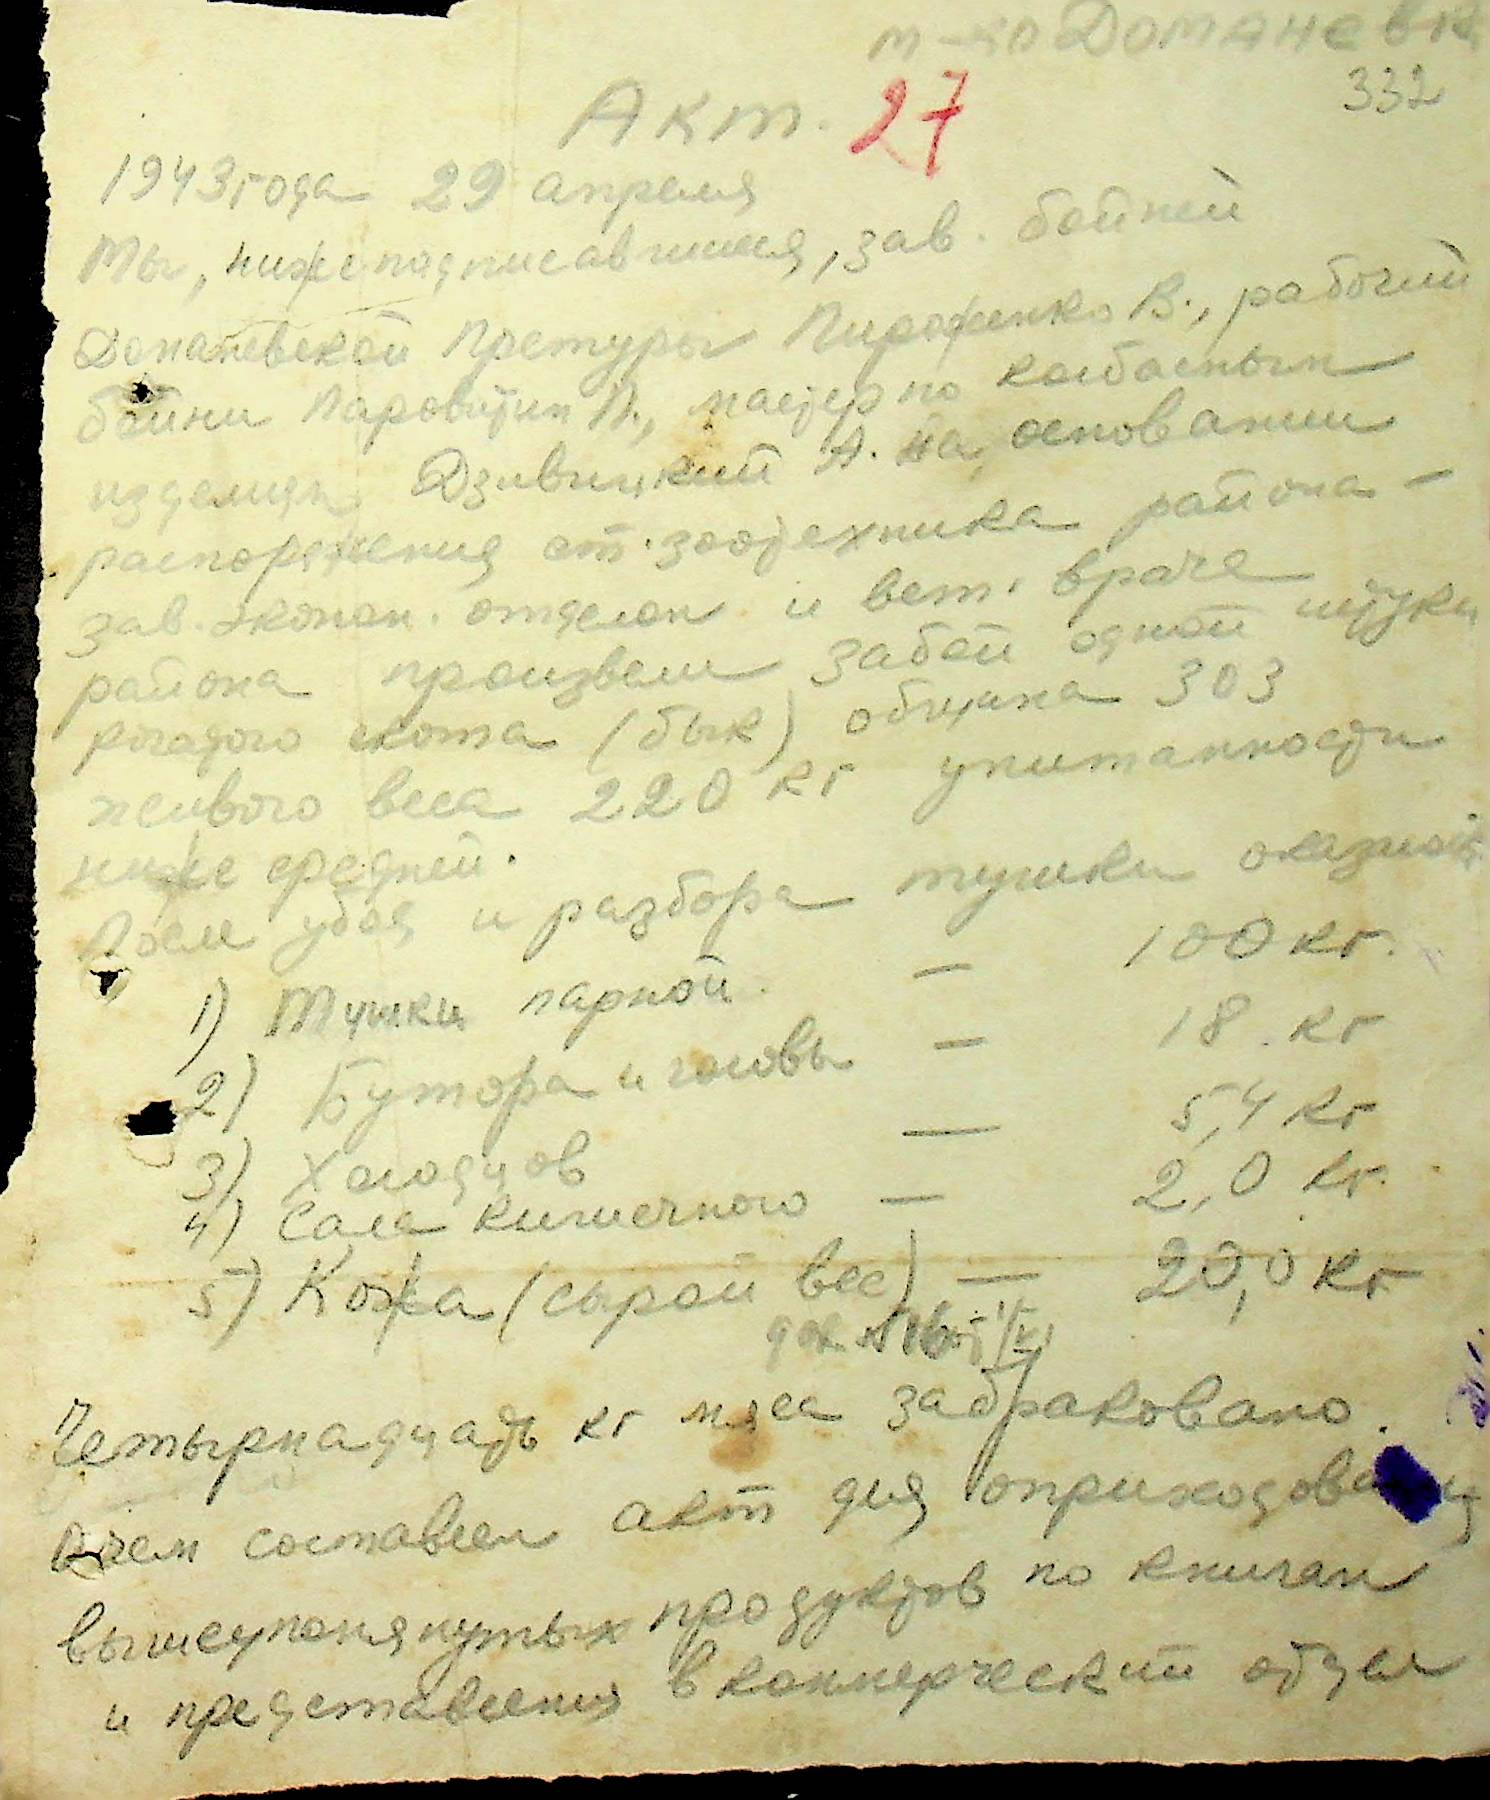 м-ко Доманевка
332
Акт. 27
1943 года 29 апреля
Мы, нижеподписавшиеся, зав. бойней
Доманевской Претуры Пироженко В., рабочий
бойни Паровитин П., мастер по колбасным
изделиям Дзивицкий А. на основании
распоряжения от зоотехника района –
зав. эконом. отделом и вет. врача
района произвели забой одной штуки
рогатого скота (бык) община 303
живого веса 220 кг упитанности
ниже средней.
После убоя и разбора тушки оказалось
1) Тушки парной – 100 кг.
2) Бутора и головы – 18. кг
3) Холодцов — 5,4 кг
4) Сала кишечного – 2,0 кг.
5) Кожа (сырой вес) — 20,0 кг
Четырнадцать кг мяса забраковано.
О чем составлен акт для оприходования
вышеупомянутых продуктов по книгам
и представления в коммерческий отдел